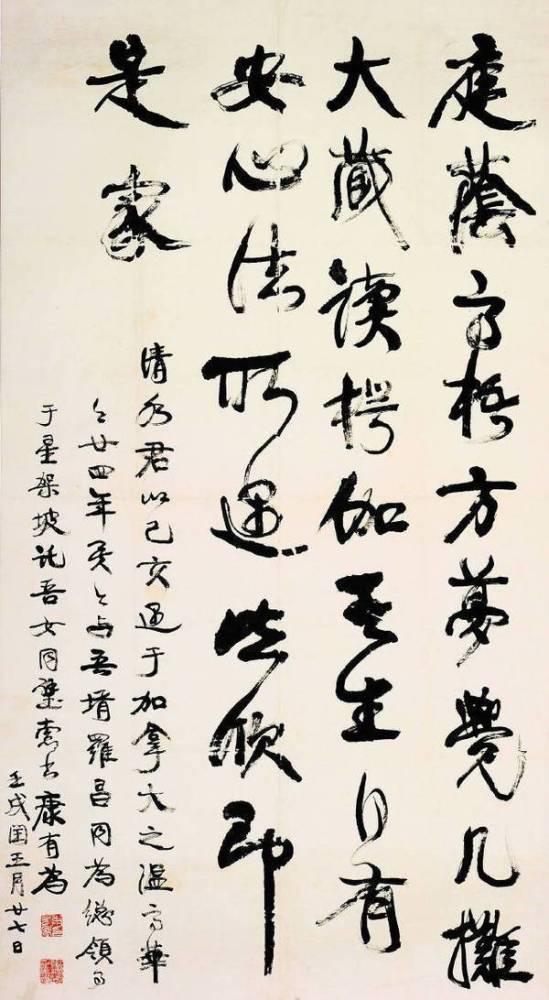 庭蔭高梧方夢覺几攤
大藏讀楞伽吾生自有
安心法所遇皆欣即
是家
清君以己亥遇于加拿大之溫高華
今廿四年矣今与吾壻羅昌同為總領事
于星架坡託吾女同璧索書康有為
壬戌閏五月廿七日